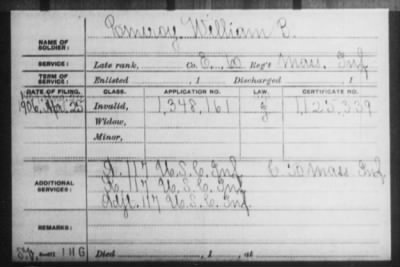 NAME OF SOLDIER: Pomeroy William C.
SERVICE: Late rank, Co. E, 60 Reg't Mass. Inf
TERM OF SERVICE: Enlisted , 1 Discharged , 1
DATE OF FILING. CLASS. APPLICATION NO. LAW. CERTIFICATE NO.
1906 Apr 25 Invalid, 1,348,161 1,125,339
Widow,
Minor,
ADDITIONAL SERVICES: 117 U.S.C. Inf C 50 Mass Inf
117 U.S.C. Inf
Adjt. 117 U.S.C. Inf.
REMARKS:
Died , 1 , at